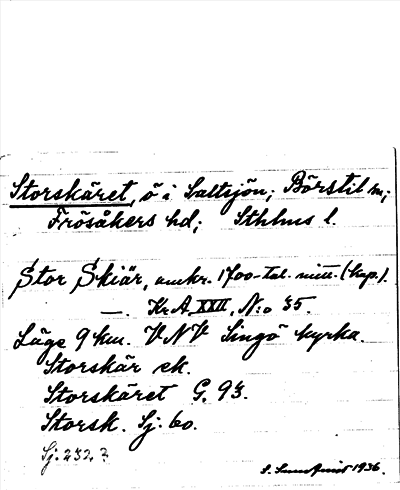 Storskäret, ö i Saltsjön; Börstil sn;
Frösåkers hd; Sthlms l.
Stor Skiär, omkr. 1700-tal. mitt. (kop.).
—. Kr.A. XXII, N:o 35.
Läge 9 km. VNV Singö kyrka.
Storskär ek.
Storskäret G. 93.
Storsk. Sj. 60.
Sj. 232 ?
1936.